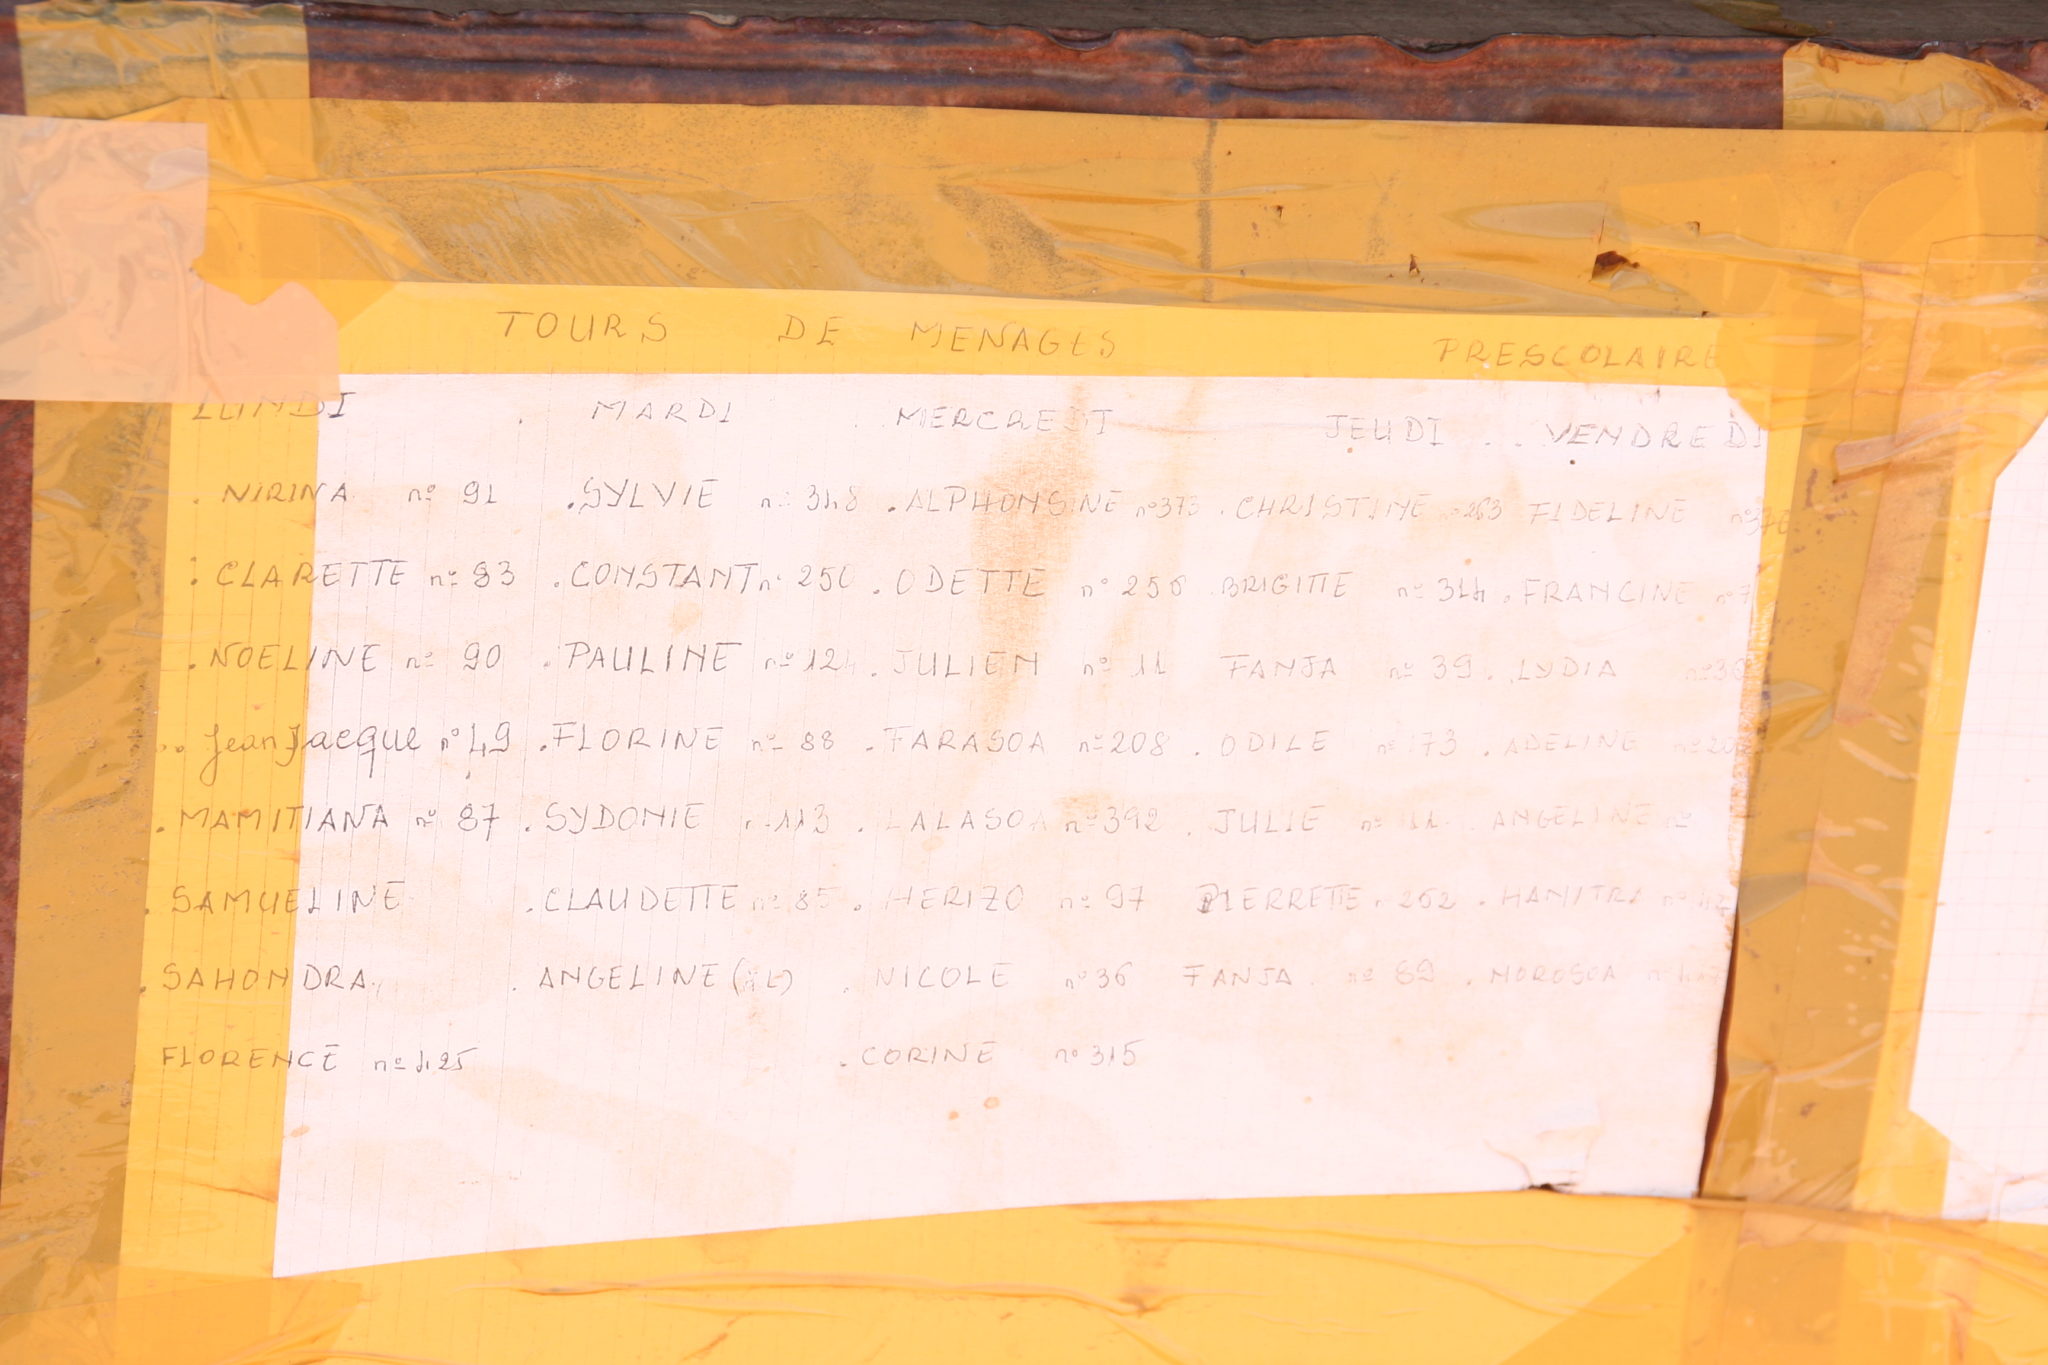 TOURS DE MENAGES PRESCOLAIRE
LUNDI MARDI MERCREDI JEUDI VENDREDI
. NIRINA nº 91 . SYLVIE nº 348 . ALPHONSINE nº373 . CHRISTINE nº 263 FIDELINE
. CLARETTE nº 93 . CONSTANT nº 250 . ODETTE nº 256 . BRIGITTE nº 314 . FRANCINE
. NOELINE nº 90 . PAULINE . JULIEN nº 11 FANJA nº 39 . LYDIA
. Jean Jacque nº 49 . FLORINE nº 88 . FARASOA nº 208 . ODILE nº 73 . ADELINE
. MAMITIANA nº 87 . SYDONIE nº 113 . LALASOA nº 392 . JULIE nº 11 . ANGELINE nº
. SAMUELINE . CLAUDETTE nº 85 . HERIZO nº 97 PIERRETTE nº 262 . HANITRA
. SAHONDRA . ANGELINE . NICOLE nº 36 FANJA nº 89 . NOROSOA
FLORENCE nº 425 . CORINE nº 315